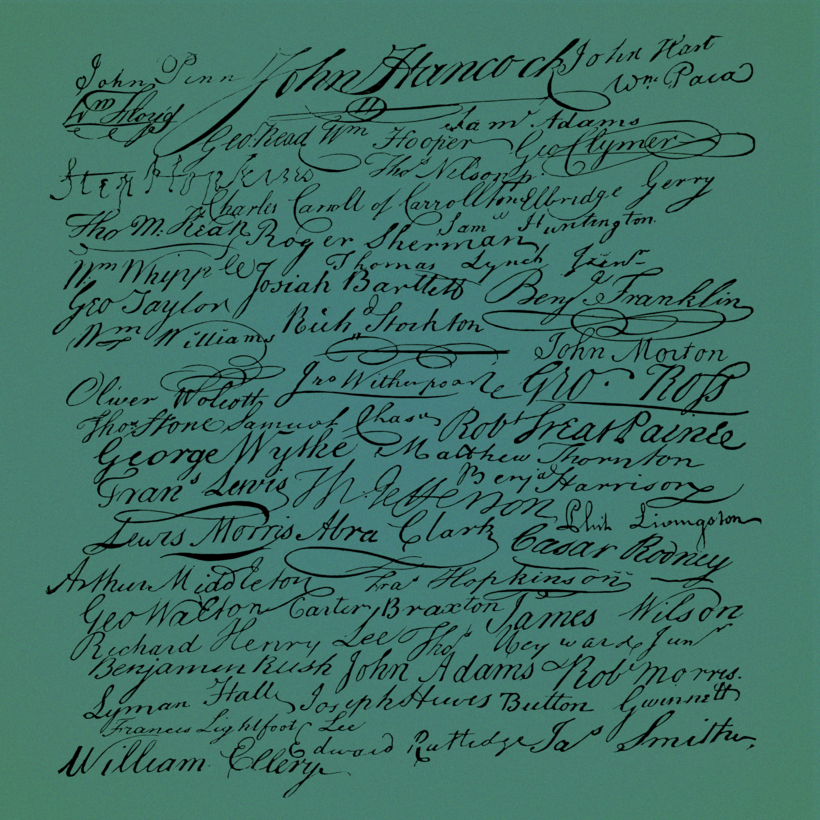 John Penn John Hancock John Hart
Wm Floyd Wm Paca
Geo Read Wm Hooper Sam Adams
Step Hopkins Thos Nelson jr Geo Clymer
Charles Carroll of Carrollton Elbridge Gerry
Tho M. Kean Roger Sherman Sam Huntington
Wm Whipple Josiah Bartlett Thomas Lynch Junr
Geo Taylor Benj Franklin
Wm Williams Rich Stockton John Morton
Oliver Wolcott Jno Witherspoon Geo. Ross
Thos Stone Samuel Chase Robt Treat Paine
George Wythe Matthew Thornton
Frans Lewis Th Jefferson Benj Harrison
Lewis Morris Abra Clark Phil Livingston
Arthur Middleton Fras Hopkinson Cæsar Rodney
Geo Walton Carter Braxton James Wilson
Richard Henry Lee Thos Heyward Junr
Benjamin Rush John Adams Robt Morris.
Lyman Hall Joseph Hewes Button Gwinnett
Francis Lightfoot Lee
William Ellery Edward Rutledge Jas Smith